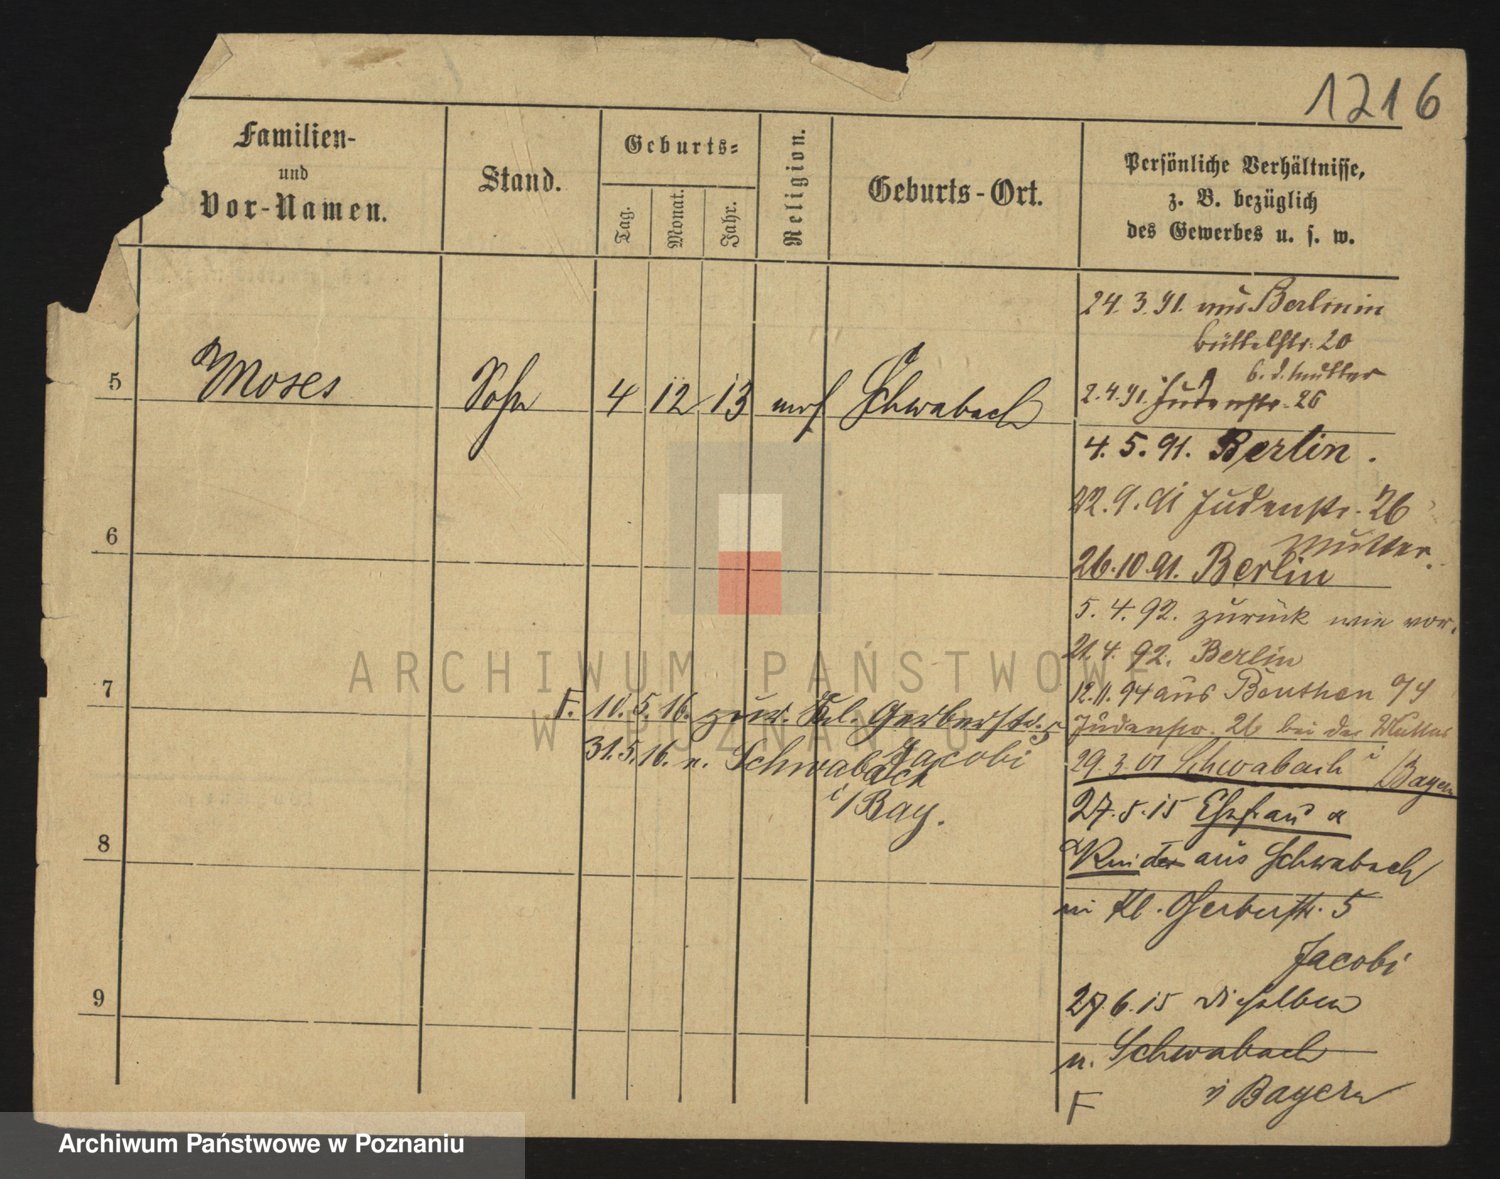 1216
Familien-
und
Vor-Namen.
Stand.
Geburts-
Tag.
Monat.
Jahr.
Religion.
Geburts-Ort.
Persönliche Verhältnisse,
z. B. bezüglich
des Gewerbes u. s. w.
5 Moses Sohn 4 12 13 mos Schwabach
24.3.91. Berlin in
20
b. d. Mutter
2.4.91. Judenstr. 26
4.5.91. Berlin.
22.9.91 Judenstr. 26
Mutter.
6
26.10.91. Berlin
5.4.92. zurück wie vor.
21.4.92. Berlin
7
12.11.94 aus Beuthen O/S
Judenstr. 26 bei der Mutter
F. 10.5.16. zur. Kl. Gerberstr. 5
Jacobi
31.5.16. n. Schwabach
i/Bay.
29.3.01 Schwabach i/Bayern
27.5.15 Ehefrau &
8
Kinder aus Schwabach
in Kl. Gerberstr. 5
Jacobi
9
27.6.15 dieselben
n. Schwabach
i/Bayern
F
ARCHIWUM PAŃSTWOWE
W POZNANIU
Archiwum Państwowe w Poznaniu